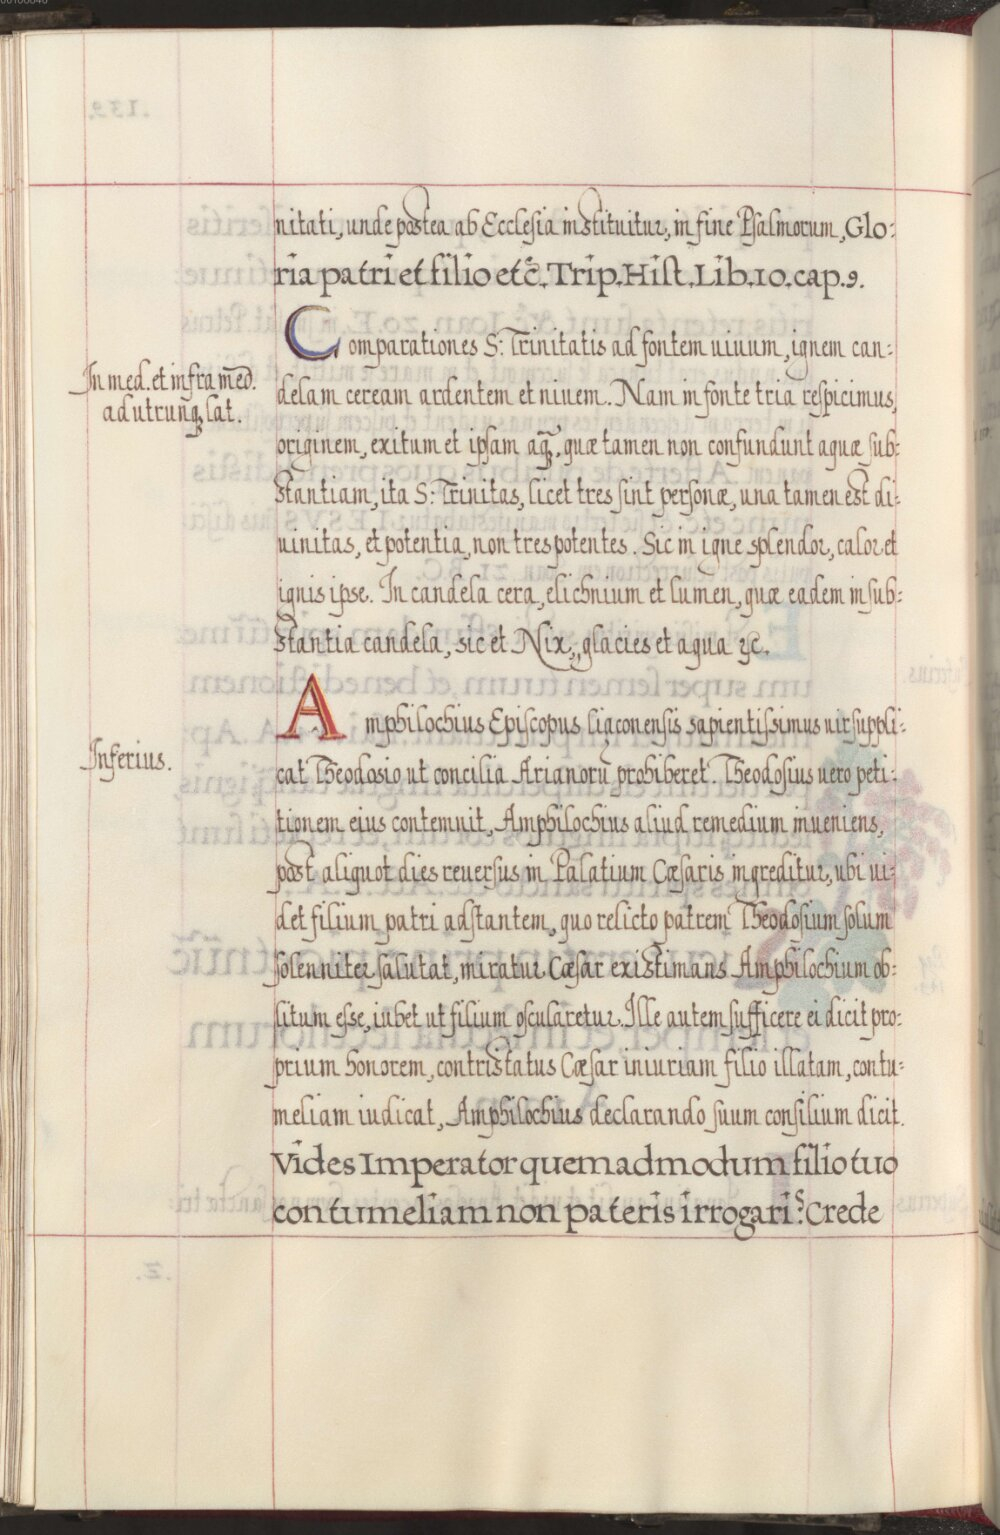 nitati, unde postea ab Ecclesia instituitur, in fine Psalmorum, Glo:
ria patri et filio etc̄. Trip. Hist. Lib. 10. cap. 9.
Comparationes S: Trinitatis ad fontem uiuum, ignem can:
In med. et infra med̄.
ad utrunq̢ lat.
delam ceream ardentem et niuem. Nam in fonte tria respicimus,
originem, exitum et ipsam aq̄, quæ tamen non confundunt aquæ sub:
stantiam, ita S: Trinitas, licet tres sint personæ, una tamen est di:
uinitas, et potentia, non tres potentes. Sic in igne splendor, calor et
ignis ipse. In candela cera, elichnium et lumen, quæ eadem in sub:
stantia candela, sic et Nix, glacies et aqua ꝛc.
Amphilochius Episcopus liaconensis sapientissimus uir suppli:
Inferius.
cat Theodosio ut concilia Arianorū prohiberet. Theodosius uero peti:
tionem eius contemnit, Amphilochius aliud remedium inueniens,
post aliquot dies reuersus in Palatium Cæsaris ingreditur, ubi ui:
det filium patri adstantem, quo relicto patrem Theodosium solum
solenniter salutat, miratur Cæsar existimans Amphilochium ob:
litum esse, iubet ut filium oscularetur. Ille autem sufficere ei dicit pro:
prium honorem, contristatus Cæsar iniuriam filio illatam, contu:
meliam iudicat, Amphilochius declarando suum consilium dicit.
Vides Imperator quemadmodum filio tuo
contumeliam non pateris irrogari? Crede